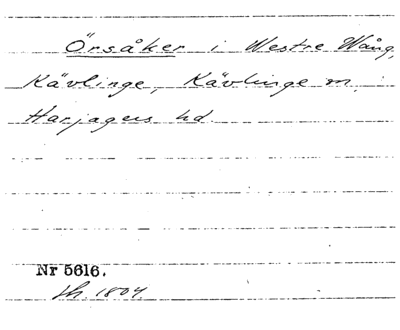 Örsåker i Westre Wång,
Kävlinge, Kävlinge m.
Harjagers hd.
Nr 5616.
Sk. 1804